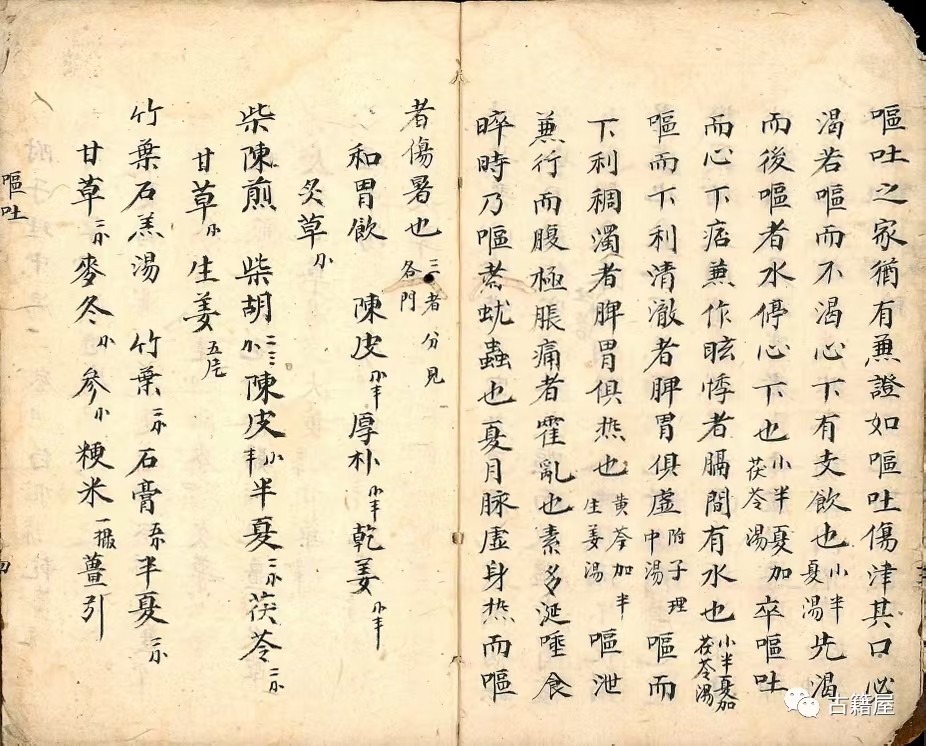 嘔吐之家猶有兼證如嘔吐傷津其口必
渴若嘔而不渴心下有支飲也小半夏湯先渴
而後嘔者水停心下也小半夏加茯苓湯卒嘔吐
而心下痞兼作眩悸者膈間有水也小半夏加茯苓湯
嘔而下利清澈者脾胃俱虛附子理中湯嘔而
下利稠濁者脾胃俱热也黄芩加半生姜湯嘔泄
兼行而腹極脹痛者霍亂也素多涎唾食
晬時乃嘔者蚘蟲也夏月脉虛身热而嘔
者傷暑也三者分見各門
和胃飲 陳皮小半厚朴小半乾姜小半
炙草小
柴陳煎 柴胡小二三陳皮小半半夏二小茯苓二小
甘草小生姜五片
竹葉石羔湯 竹葉二小石膏五小半夏二小
甘草二小麥冬小參小粳米一撮薑引
嘔吐
古籍屋